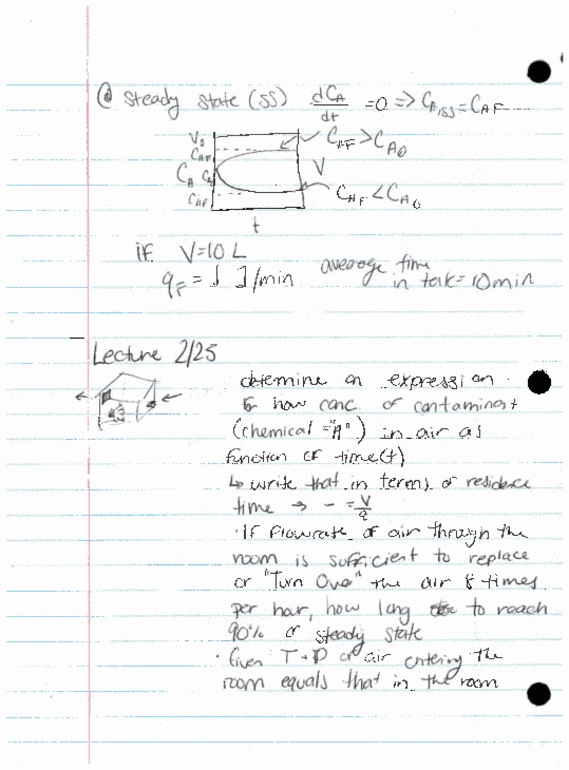 @ Steady State (SS) dCA/dt = 0 => CA,SS = CAF
V0
CAF CAF > CA0
CA CA V
CAF CAF < CA0
t
if V=10 L
qF = 1 L/min average time
in tank = 10 min
Lecture 2/25
determine an expression
for how conc. of contaminant
(chemical = "A") in air as
function of time (t)
↳ write that in terms of residence
time → = V/q
· If flowrate of air through the
room is sufficient to replace
or "Turn Over" the air 8 times
per hour, how long to reach
90% of steady state
· Given T + P of air entering the
room equals that in the room